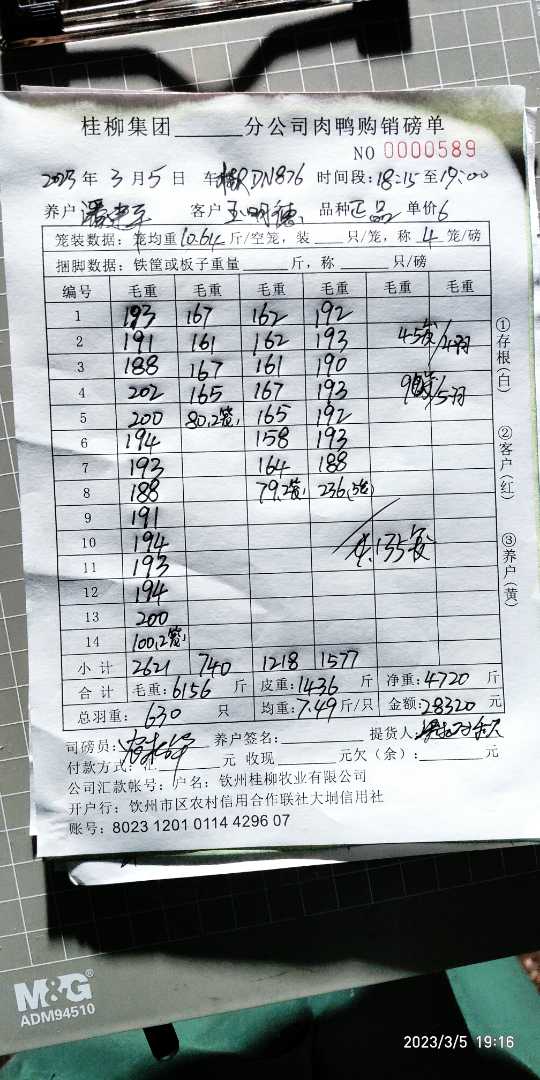 桂柳集团______分公司肉鸭购销磅单
NO 0000589
2023年3月5日 车 DN876 时间段:18:15至19:00
养户 客户 王明德 品种正品 单价6
笼装数据: 笼均重10.64斤/空笼, 装___只/笼, 称4笼/磅
捆脚数据: 铁筐或板子重量_____斤, 称_____只/磅
编号 毛重 毛重 毛重 毛重 毛重 毛重
1 193 167 162 192
2 191 161 162 193 45笼/4羽
3 188 167 161 190
4 202 165 167 193 90笼/5羽
5 200 80.2笼 165 192
6 194 158 193
7 193 164 188
8 188 79.2笼 236(3笼)
9 191
10 194 135笼
11 193
12 194
13 200
14 100.2笼
小计 2621 740 1218 1577
合计 毛重:6156斤 皮重:1436斤 净重:4720斤
总羽重: 630 只 均重:7.49斤/只 金额:28320元
司磅员: 养户签名: 提货人:
付款方式: 元 收现______元欠(余):______元
公司汇款帐号: 户名: 钦州桂柳牧业有限公司
开户行: 钦州市区农村信用合作联社大垌信用社
账号: 8023 1201 0114 4296 07
①存根(白)
②客户(红)
③养户(黄)
M&G®
ADM94510
2023/3/5 19:16